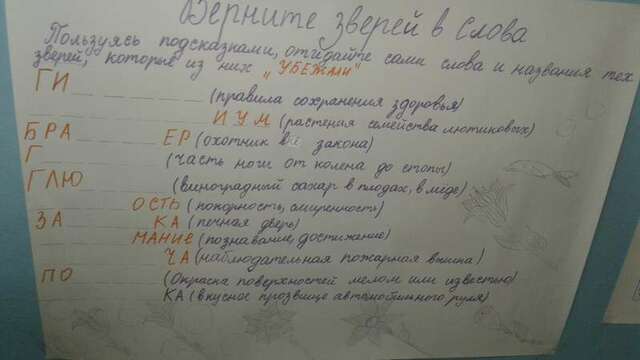 Верните зверей в слова
Пользуясь подсказками, отгадайте сами слова и названия тех
зверей, которые из них "УБЕЖАЛИ"
ГИ _ _ _ _ (правила сохранения здоровья)
_ _ _ _ ИУМ (растения семейства лютиковых)
БРА _ _ _ _ ЕР (охотник вне закона)
Г _ _ _ _ (часть ноги от колена до стопы)
ГЛЮ _ _ _ _ (виноградный сахар в плодах, в мёде)
_ _ _ _ ОСТЬ (покорность, смиренность)
ЗА _ _ _ _ КА (печная дверь)
_ _ _ _ МАНИЕ (познавание, достижание)
_ _ _ _ ЧА (наблюдательная пожарная вышка)
ПО _ _ _ _ (Окраска поверхностей мелом или известью)
_ _ _ _ КА (вкусное прозвище автомобильного руля)